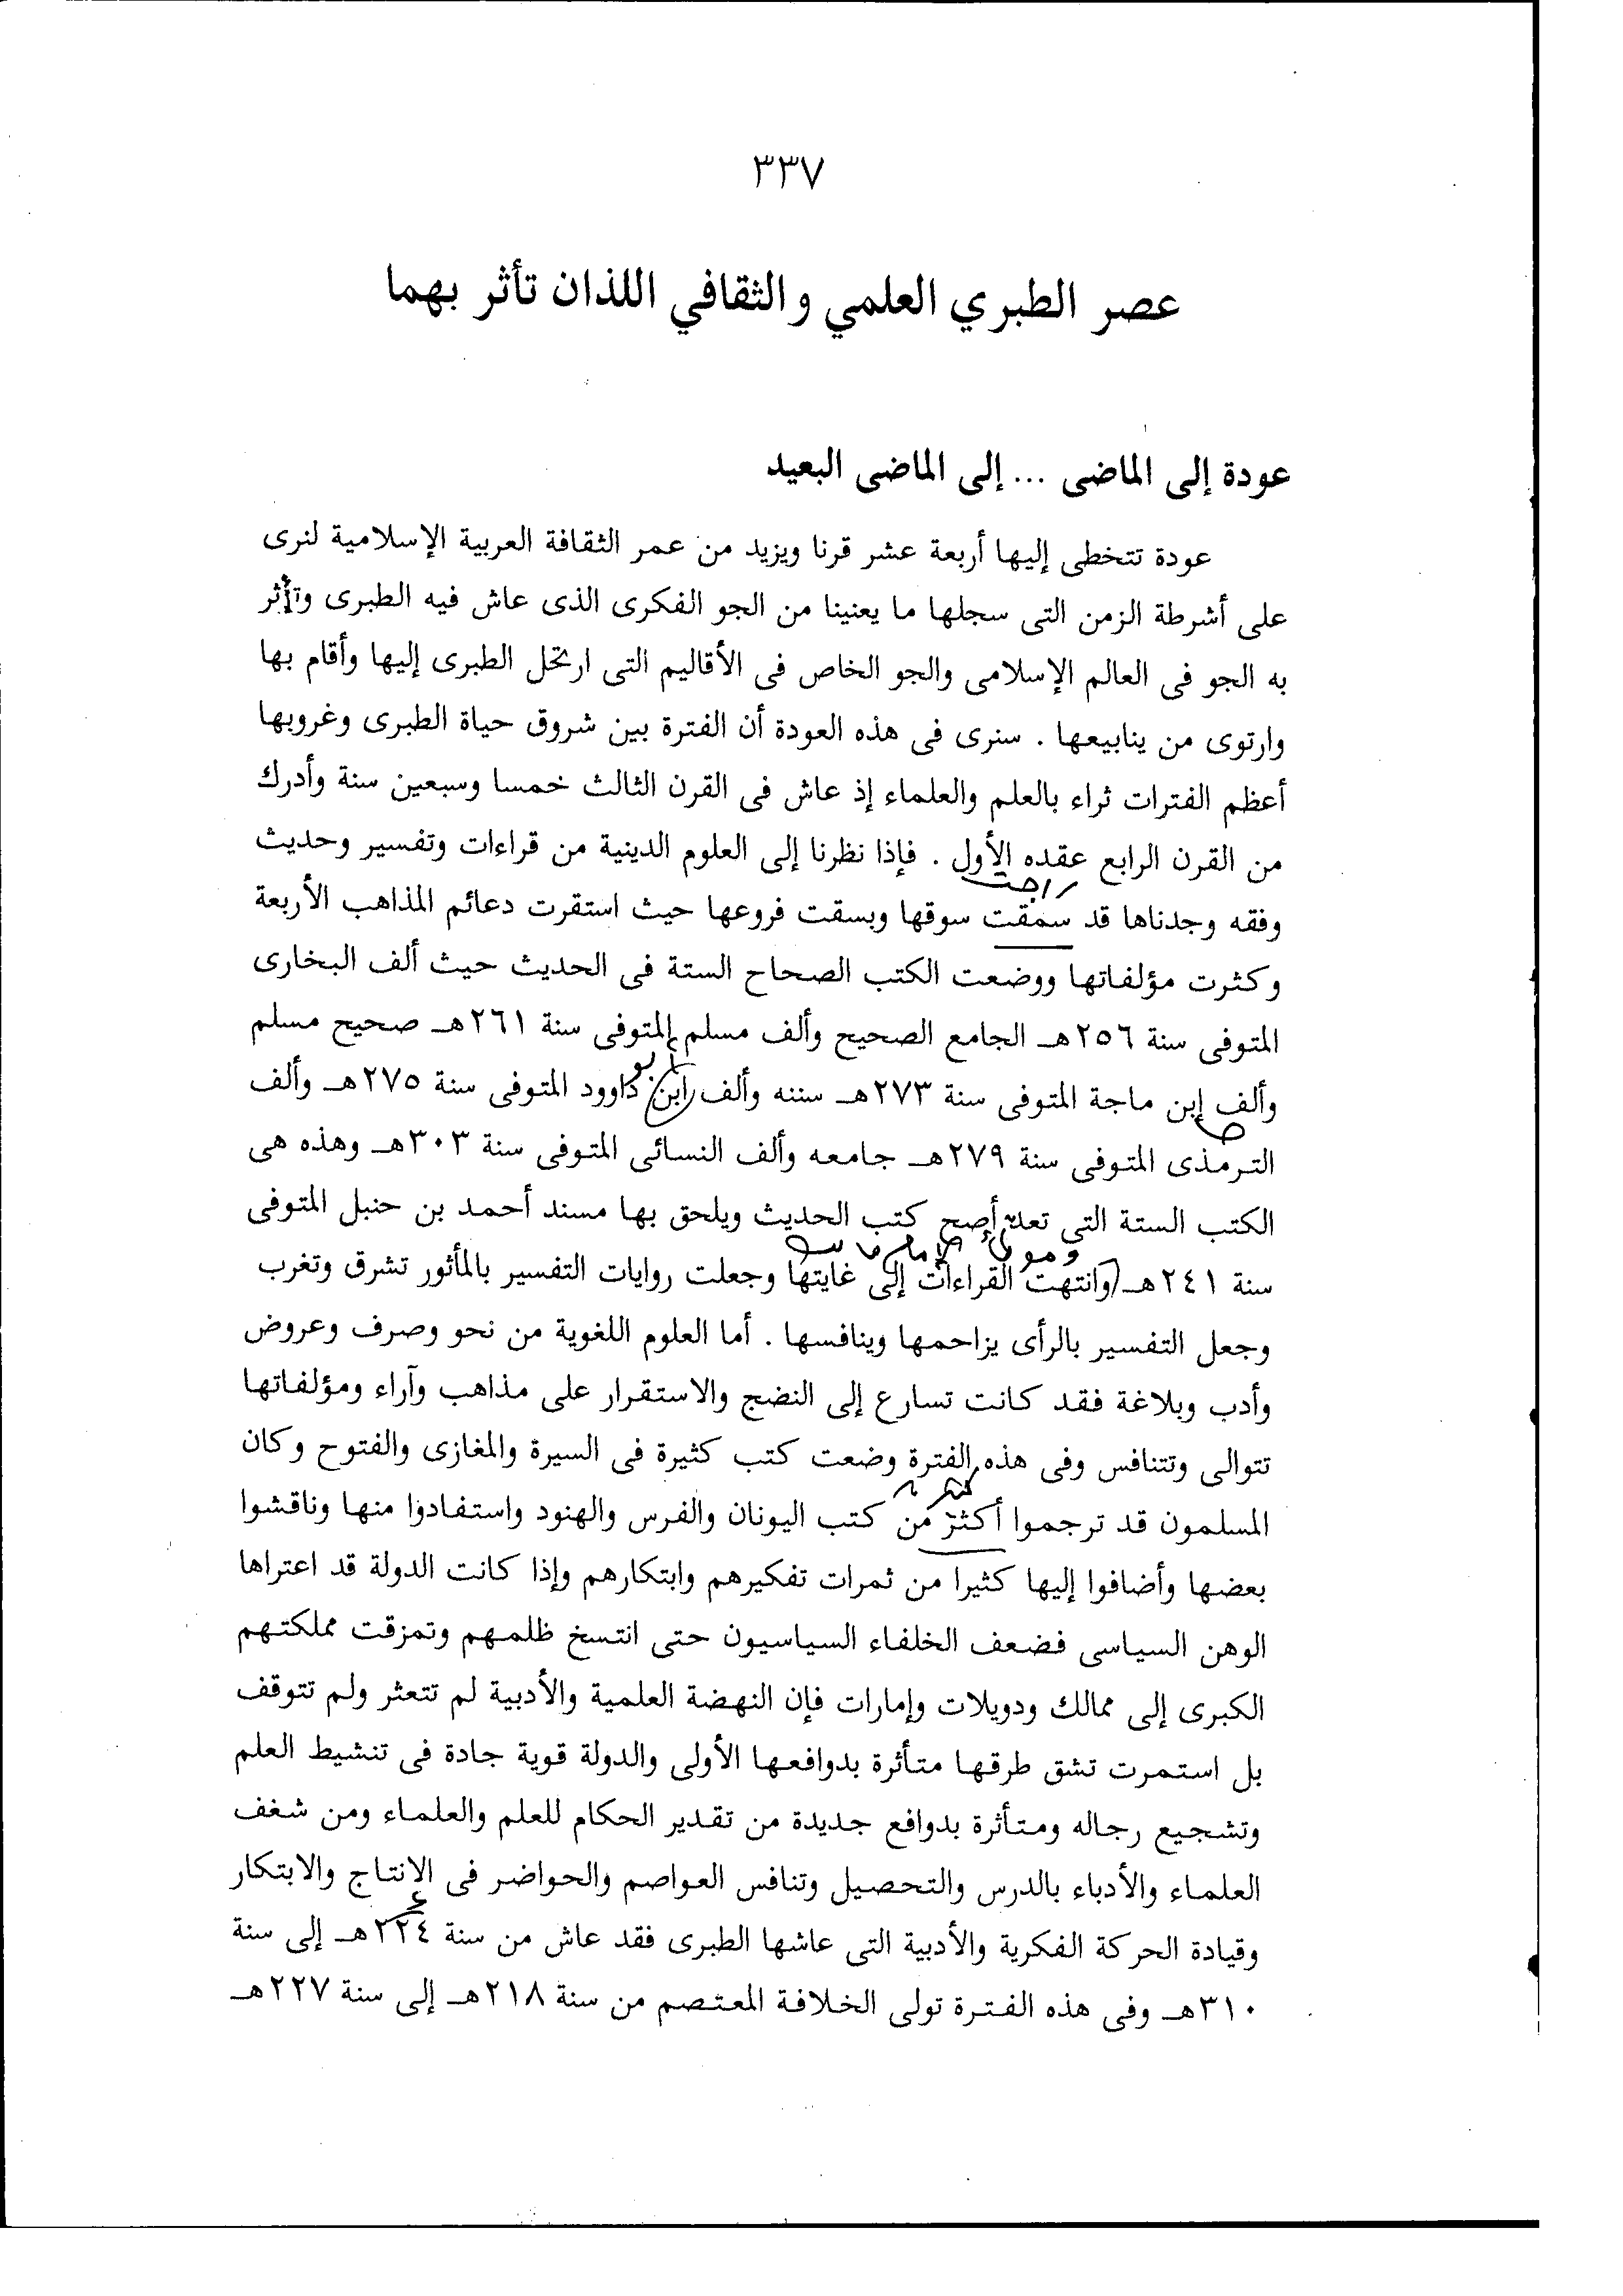 ٣٣٧
عصر الطبري العلمي والثقافي اللذان تأثر بهما
عودة إلى الماضى ... إلى الماضى البعيد
عودة تتخطى إليها أربعة عشر قرنا ويزيد من عمر الثقافة العربية الإسلامية لنرى
على أشرطة الزمن التى سجلها ما يعنينا من الجو الفكرى الذى عاش فيه الطبرى وتأثر
به الجو فى العالم الإسلامى والجو الخاص فى الأقاليم التى ارتحل الطبرى إليها وأقام بها
وارتوى من ينابيعها . سنرى فى هذه العودة أن الفترة بين شروق حياة الطبرى وغروبها
أعظم الفترات ثراء بالعلم والعلماء إذ عاش فى القرن الثالث خمسا وسبعين سنة وأدرك
من القرن الرابع عقده الأول . فإذا نظرنا إلى العلوم الدينية من قراءات وتفسير وحديث
راجت
وفقه وجدناها قد سمقت سوقها وبسقت فروعها حيث استقرت دعائم المذاهب الأربعة
وكثرت مؤلفاتها ووضعت الكتب الصحاح الستة فى الحديث حيث ألف البخارى
المتوفى سنة ٢٥٦هـ الجامع الصحيح وألف مسلم المتوفى سنة ٢٦١هـ صحيح مسلم
أبو
وألف إبن ماجة المتوفى سنة ٢٧٣هـ سننه وألف ابن داوود المتوفى سنة ٢٧٥هـ وألف
الترمذى المتوفى سنة ٢٧٩هـ جامعه وألف النسائى المتوفى سنة ٣٠٣هـ وهذه هى
الكتب الستة التى تعد أصح كتب الحديث ويلحق بها مسند أحمد بن حنبل المتوفى
وموطأ الإمام مالك
سنة ٢٤١هـ وانتهت القراءات إلى غايتها وجعلت روايات التفسير بالمأثور تشرق وتغرب
وجعل التفسير بالرأى يزاحمها وينافسها . أما العلوم اللغوية من نحو وصرف وعروض
وأدب وبلاغة فقد كانت تسارع إلى النضج والاستقرار على مذاهب وآراء ومؤلفاتها
تتوالى وتتنافس وفى هذه الفترة وضعت كتب كثيرة فى السيرة والمغازى والفتوح وكان
المسلمون قد ترجموا أكثر من كتب اليونان والفرس والهنود واستفادوا منها وناقشوا
بعضها وأضافوا إليها كثيرا من ثمرات تفكيرهم وابتكارهم وإذا كانت الدولة قد اعتراها
الوهن السياسى فضعف الخلفاء السياسيون حتى انتسخ ظلمهم وتمزقت مملكتهم
الكبرى إلى ممالك ودويلات وإمارات فإن النهضة العلمية والأدبية لم تتعثر ولم تتوقف
بل استمرت تشق طرقها متأثرة بدوافعها الأولى والدولة قوية جادة فى تنشيط العلم
وتشجيع رجاله ومتأثرة بدوافع جديدة من تقدير الحكام للعلم والعلماء ومن شغف
العلماء والأدباء بالدرس والتحصيل وتنافس العواصم والحواضر فى الإنتاج والابتكار
وقيادة الحركة الفكرية والأدبية التى عاشها الطبرى فقد عاش من سنة ٢٢٤هـ إلى سنة
٣١٠هـ وفى هذه الفترة تولى الخلافة المعتصم من سنة ٢١٨هـ إلى سنة ٢٢٧هـ